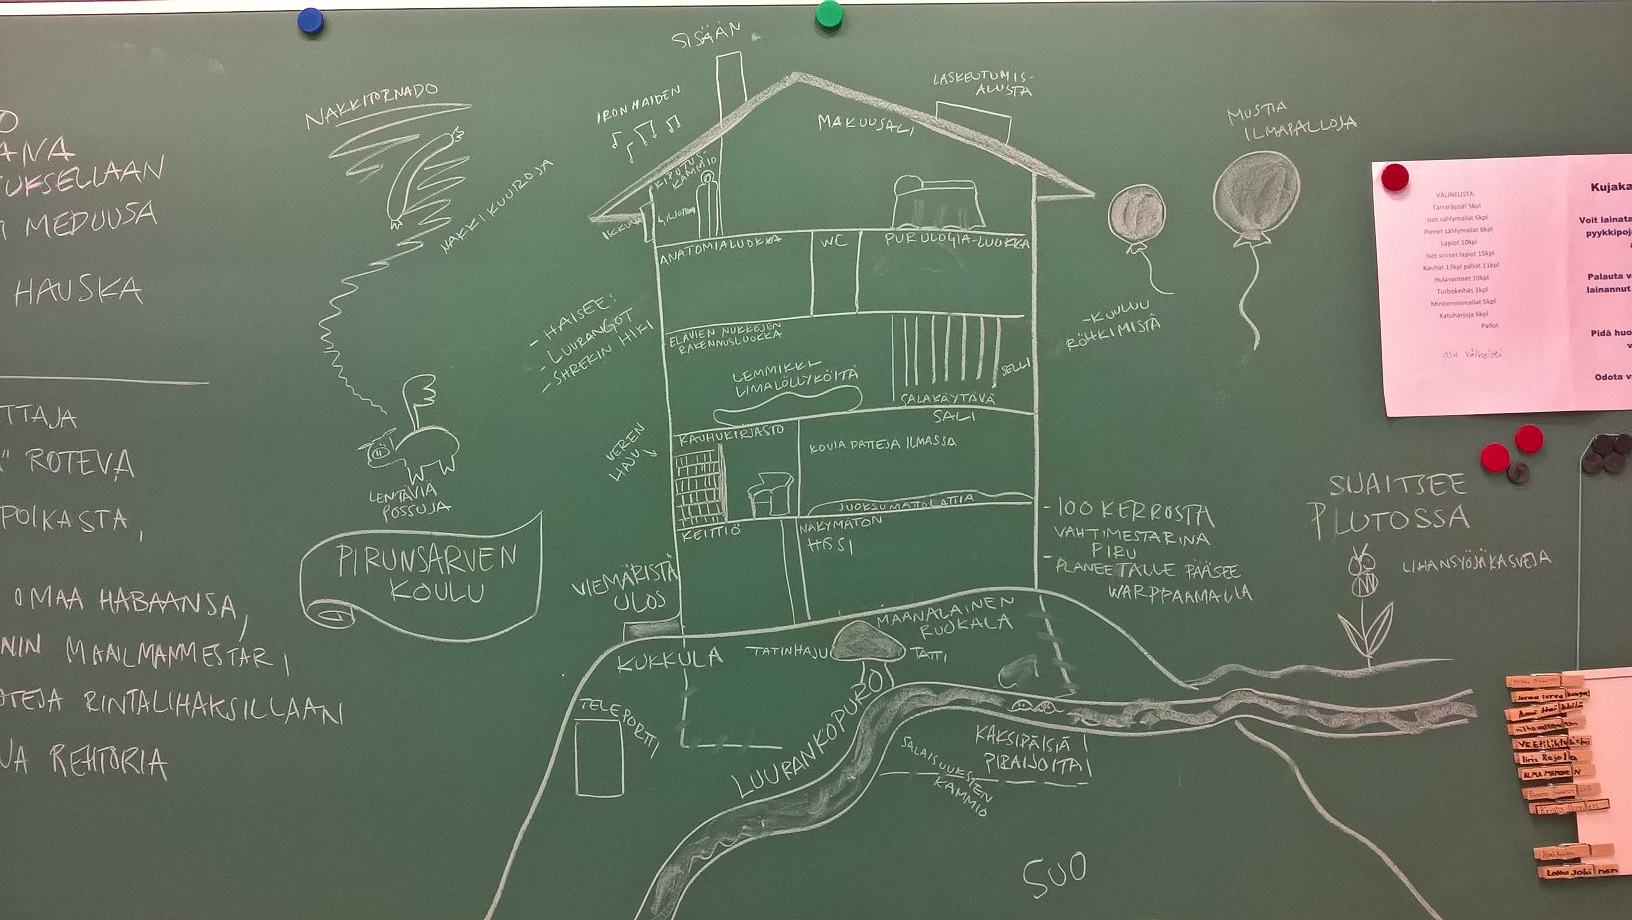 ANA
TUKSELLAAN
MEDUUSA
HAUSKA
TTAJA
ROTEVA
POIKASTA,
OMAA HABAANSA,
NIN MAAILMANMESTARI
OTEJA RINTALIHAKSILLAAN
JA REHTORIA
NAKKITORNADO
NAKKIKUUROJA
LENTÄVIÄ
POSSUJA
PIRUNSARVEN
KOULU
SISÄÄN
IRON MAIDEN
LASKEUTUMIS-
ALUSTA
MAKUUSALI
KIDUTUS-
KAMMIO
GILJOTIINI
IKKUNA
ANATOMIALUOKKA
WC
PURULOGIA-LUOKKA
- HAISEE:
- LUURANGOT
- SHREKIN HIKI
ELÄVIEN NUKKEJEN
RAKENNUSLUOKKA
LEMMIKKI
LIMALÖLLYKÖITÄ
SELLI
SALAKÄYTÄVÄ
SALI
VEREN
HAJU
KAUHUKIRJASTO
KOVIA PATTEJA ILMASSA
JUOKSUMATTOLATTIA
KEITTIÖ
NÄKYMÄTÖN
HISSI
VIEMÄRISTÄ
ULOS
MUSTIA
ILMAPALLOJA
- KUULUU
RÖHKIMISTÄ
- 100 KERROSTA
VAHTIMESTARINA
PIRU
- PLANEETALLE PÄÄSEE
WARPPAAMALLA
SIJAITSEE
PLUTOSSA
LIHANSYÖJÄKASVEJA
KUKKULA
TATINHAJU
TATTI
MAANALAINEN
RUOKALA
TELEPORTTI
LUURANKOPURO
KAKSIPÄISIÄ
PIRAIJOITA
SALAISUUKSIEN
KAMMIO
SUO
VÄLINEUSTA:
Tarraräpsät 5kpl
Isot sählymailat 6kpl
Pienet sählymailat 8kpl
Lapiot 10kpl
Isot siniset lapiot 15kpl
Kauhat 13kpl pallot 11kpl
Hulavanteet 10kpl
Turbokeihäs 1kpl
Minitennismailat 5kpl
Katuharjoja 6kpl
Pallot
Kujaka
Voit lainata
pyykkipoj
Palauta v
lainannut
Pidä huo
v
Odota v